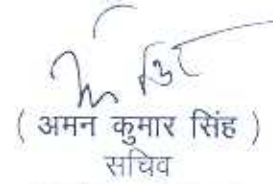 ( अमन कुमार सिंह )
सचिव